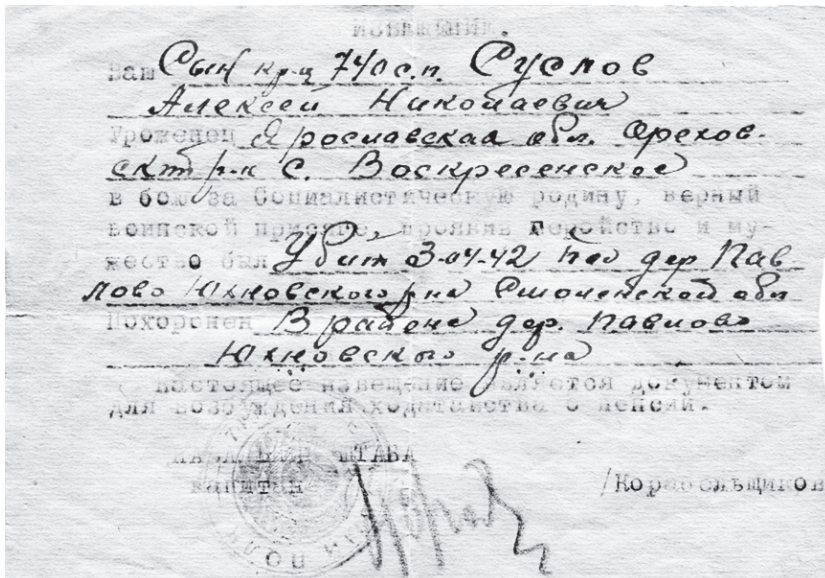 ИЗВЕЩЕНИЕ.
Ваш Сын кр-ц 740 с.п. Суслов
Алексей Николаевич
Уроженец Ярославская обл. Арехов-
ский р-н с. Воскресенское
в бою за Социалистическую родину, верный
воинской присяге, проявив геройство и му-
жество был Убит 3-04-42 под дер Пав
лово Юхновского р-на Смоленской обл
Похоронен В районе дер. Павлово
Юхновского р-на
настоящее извещение является документом
для возбуждения ходатайства о пенсии.
НАЧАЛЬНИК ШТАБА
капитан /Корабельщиков